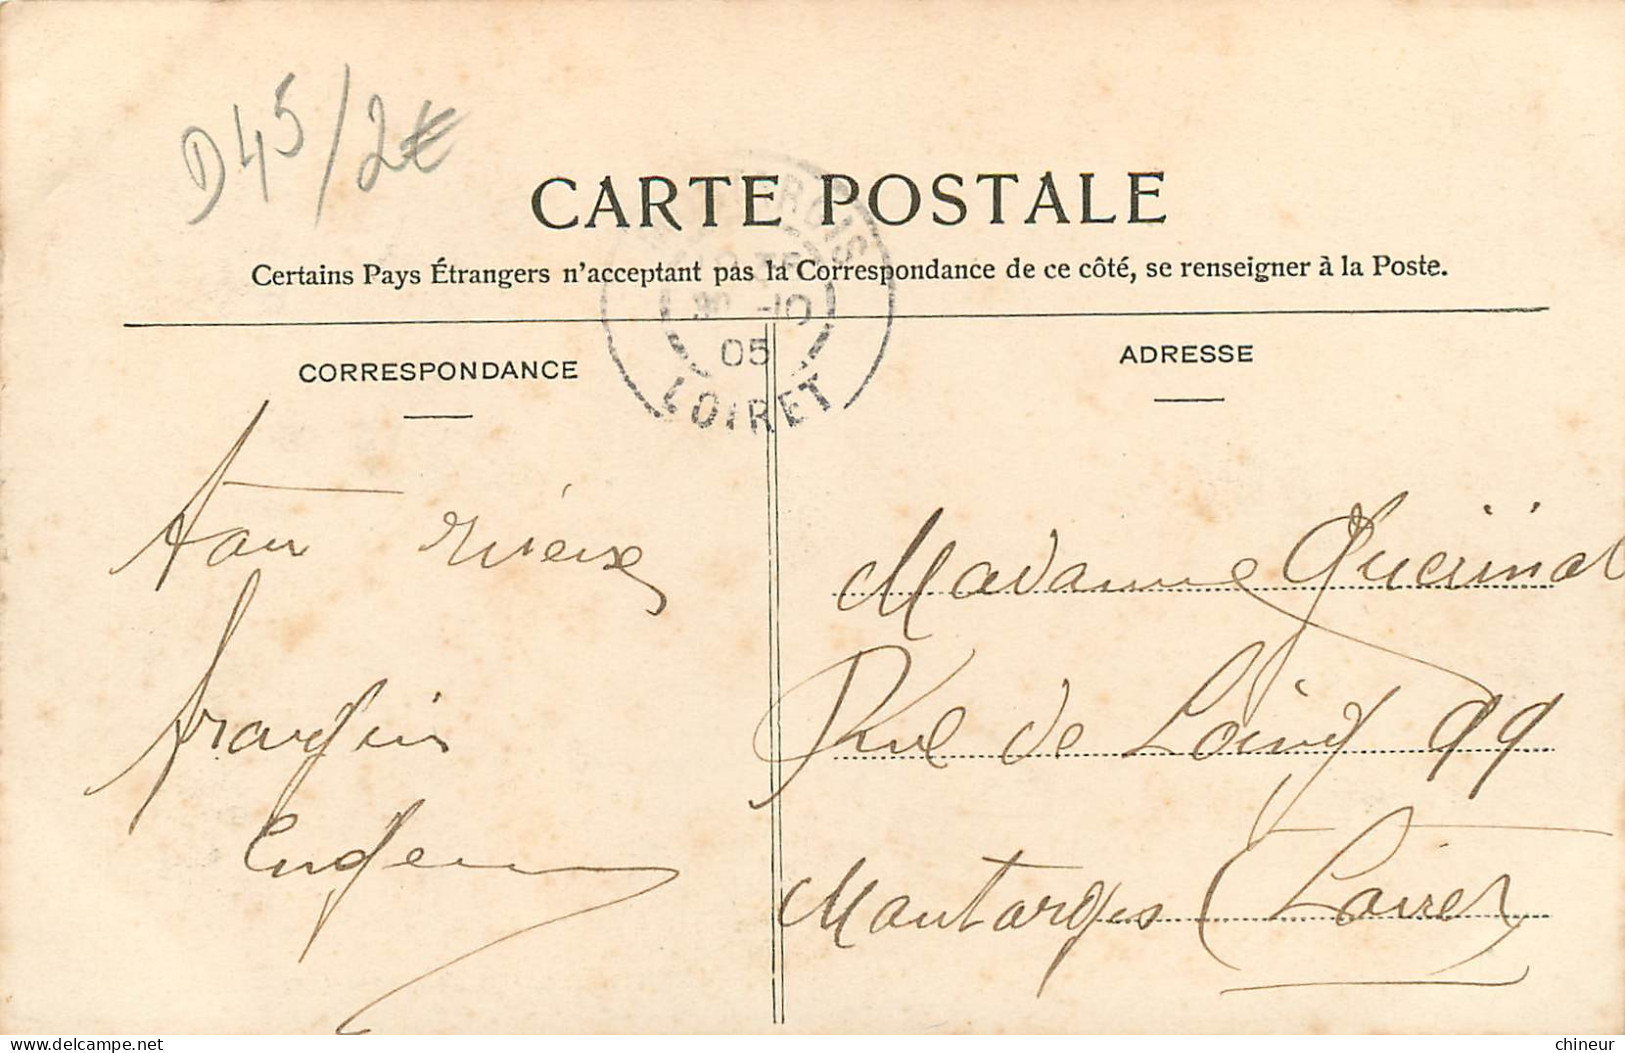 D45/2€
CARTE POSTALE
Certains Pays Étrangers n'acceptant pas la Correspondance de ce côté, se renseigner à la Poste.
-10
05
LOIRET
CORRESPONDANCE
ton vieux
frangin
Eugene
ADRESSE
Madame
Rue de Loing 99
Montargis (Loiret)
chineur